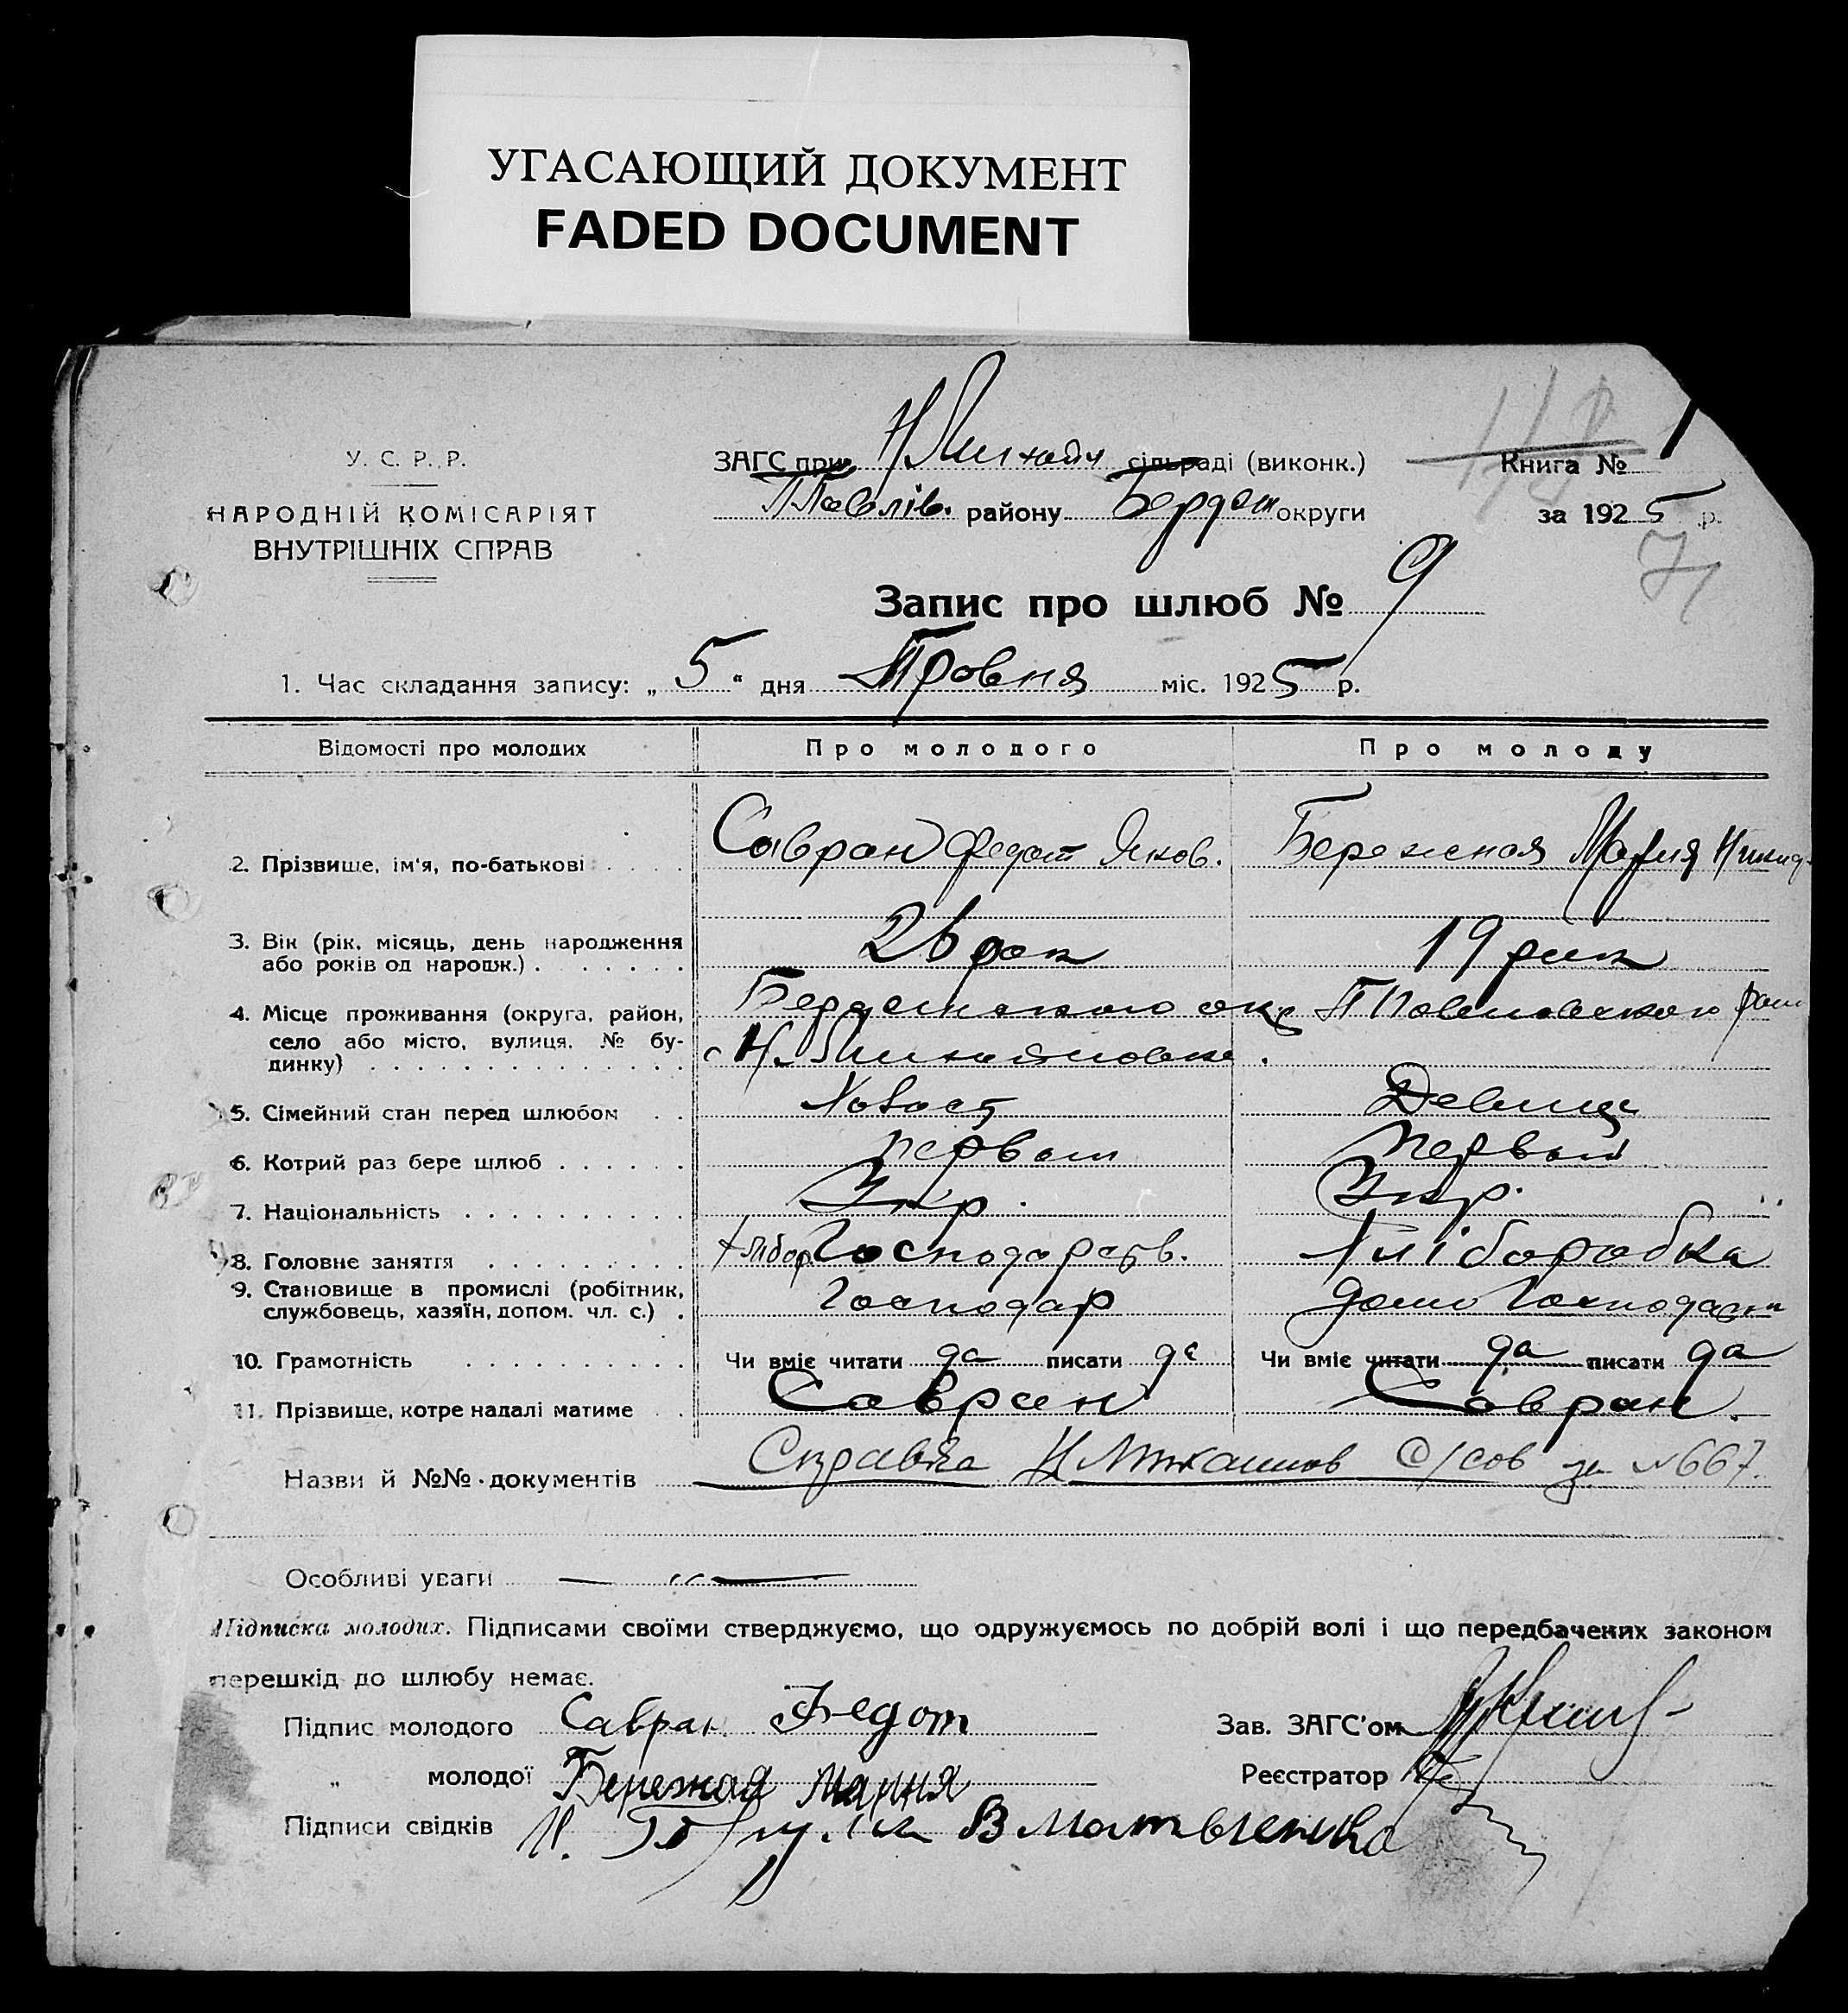 УГАСАЮЩИЙ ДОКУМЕНТ
FADED DOCUMENT
У. С. Р. Р.
НАРОДНІЙ КОМІСАРІЯТ
ВНУТРІШНІХ СПРАВ
ЗАГС при сільраді (виконк.)
П Павлів. району Бердян округи
Книга № 1
за 1925 р.
71
Запис про шлюб № 9
1. Час складання запису: „ 5 “ дня Тровня міс. 1925 р.
Відомості про молодих Про молодого Про молоду
2. Прізвище, ім'я, по-батькові Савран Федот Яков. Бережная Мария Никид.
3. Вік (рік, місяць, день народження
або років од нарoдж.) 26 рок 19 рик
4. Місце проживання (округа, район,
село або місто, вулиця, № бу-
динку)
Бердянського окр П Павловского раи
с Н.
5. Сімейний стан перед шлюбом Холост Девица
6. Котрий раз бере шлюб первый первый
7. Національність Укр. Укр.
8. Головне заняття хлібор Господарств. Хліборобка
9. Становище в промислі (робітник,
службовець, хазяїн, допом. чл. с.) Господар дом Господарки
10. Грамотність Чи вміє читати да писати да Чи вміє читати да писати да
11. Прізвище, котре надалі матиме Савран Савран.
Назви й №№ документів Справка Н С/сов за №667.
Особливі уваги — „ —
Підписка молодих. Підписами своїми стверджуємо, що одружуємось по добрій волі і що передбачених законом
перешкід до шлюбу немає.
Підпис молодого Савран Федот Зав. ЗАГС'ом
„ молодої Бережная Мария Реєстратор
Підписи свідків В Матвиенко